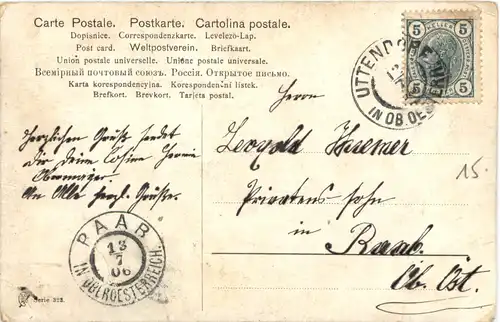 Carte Postale. Postkarte. Cartolina postale.
Dopisnice. Correspondenzkarte. Levelező-Lap.
Post card. Weltpostverein. Briefkaart.
Union postale universelle. Unione postale universale.
Всемірный почтовый союзъ. Россія. Открытое письмо.
Karta korespondencyjna. Korespondenční listek.
Brefkort. Brevkort. Tarjeta postal.
5 5
5 5
UTTENDORF
IN OB. OEST
Herrn
Leopold
Privatens-sohn
in
Raab
Ob. Öst.
15.
Herzlichen Gruß sendet
Dir deine Cosine
Obermayer.
An Alle herzl. Grüße.
RAAB
13
7
06
IN OBEROESTERREICH.
Serie 313.